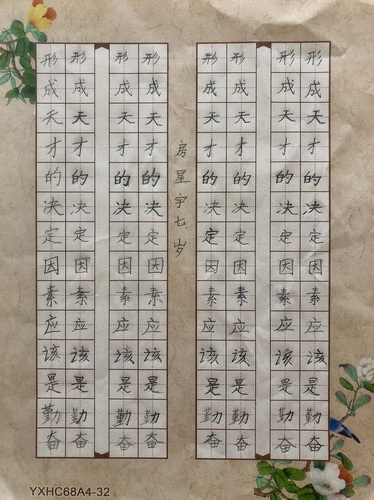 形成天才的决定因素应该是勤奋
形成天才的决定因素应该是勤奋
形成天才的决定因素应该是勤奋
形成天才的决定因素应该是勤奋
房星宇七岁
形成天才的决定因素应该是勤奋
形成天才的决定因素应该是勤奋
形成天才的决定因素应该是勤奋
形成天才的决定因素应该是勤奋
YXHC68A4-32